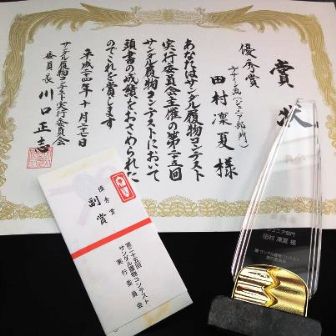 賞状
優秀賞
田村凜夏様
あなたはサンダル履物コンテスト
実行委員会主催の第二十五回
サンダル履物コンテストにおいて
頭書の成績をおさめられた
のでこれを賞します
平成二十四年十月二十七日
サンダル履物コンテスト実行委員会
委員長 川口正
優秀賞
副賞
第二十五回
サンダル履物コンテスト
実行委員会
田村 凜夏 様